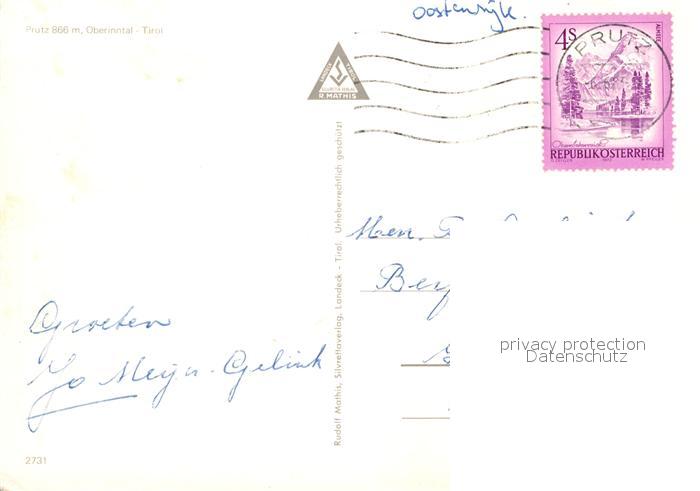 Oostenrijk.
Prutz 866 m, Oberinntal - Tirol
R. MATHIS
4S
ALMSEE
PRUTZ
REPUBLIK ÖSTERREICH
Rudolf Mathis, Silvrettaverlag, Landeck - Tirol. Urheberrechtlich geschützt
Groeten
Jo Meijer-Gelink
privacy protection
Datenschutz
2731